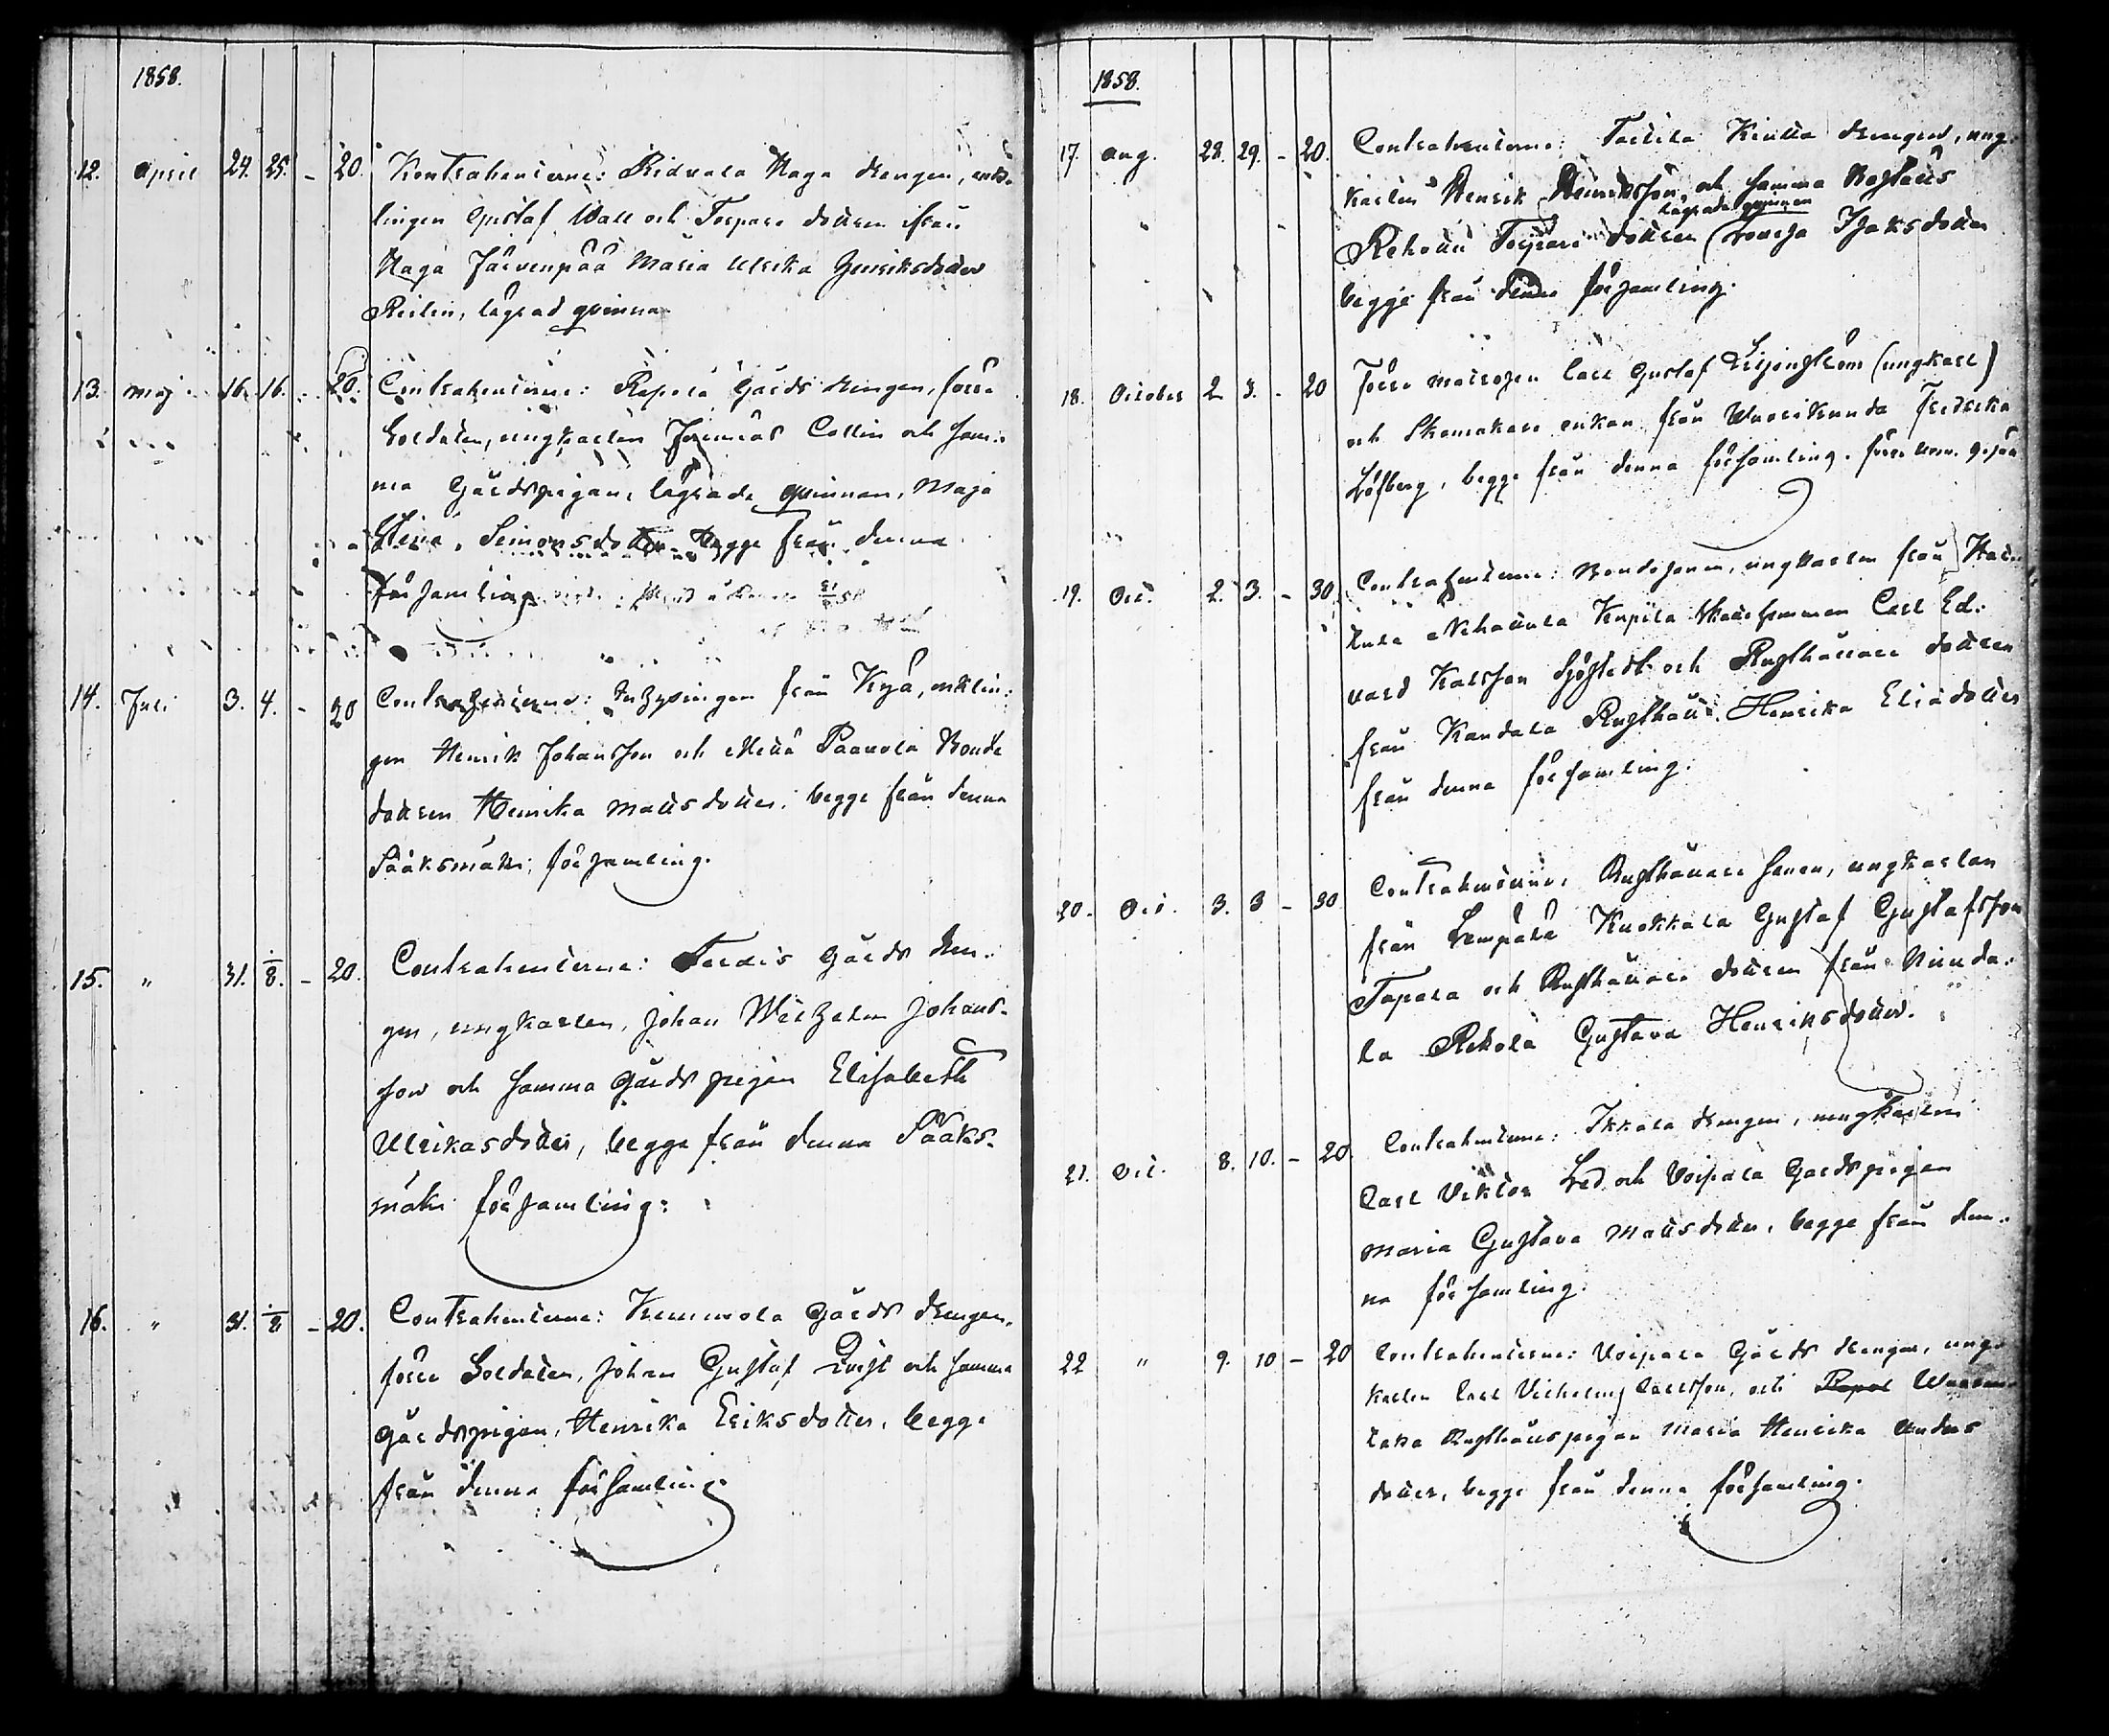 1858.
12. April 24. 25. - 20. Kontrahenterne: Ridvala Haga drengen, enk-
lingen Gustaf Wall och Torpare dottren från
Haga Järvenpää Maria Ulrika Henriksdotter
Reilin, lägrad qvinna
13. Maj 16. 16. - 20. Contrahenterne: Rapola Gårds drengen, förre
Soldaten, ungkarlen Jeremias Collin och sam-
ma Gårdspigan, lägrade qvinnan, Maja
Stina Simonsdotter begge från denna
församling
14. Juli 3. 4. - 20 Contrahenterne: Inhysingen från Kyä, enklin-
gen Henrik Johansson och Paavola Bonde
dottren Henrika Mattsdotter, begge från denna
Sääksmäki församling.
15. " 31. 1/8. - 20. Contrahenterne: Gårds dren-
gen, ungkarlen, Johan Wilhelm Johans-
son och samma Gårds pigan Elisabeth
Ulrikasdotter, begge från denna Sääks-
mäki församling.
16. " 31. 1/8 - 20. Contrahenterne: Kemmola Gårds drengen,
förre Soldaten, Johan Gustaf Qvist och samma
Gårdspigan, Henrika Eriksdotter, begge
från denna församling.
1858.
17. Aug. 28. 29. - 20. Contrahenterne: drengen, ung-
karlen Henrik Henriksson och samma
lägrade qvinnan
Torpare dottren Lovisa Isaksdotter
begge från denna församling.
18. October 2 3. - 20 Förre matrosen Carl Gustaf Liljeström (ungkarl)
och Skomakare enkan från Fredrika
Löfberg, begge från denna församling.
19. Oct. 2. 3. - 30. Contrahenterne: Bondesonen, ungkarlen från
Carl Ed-
vard Karlsson Sjöstedt och Rusthållare dottren
från Kandala Rusthåll Henrika Eliädotter
från denna församling.
20. Oct. 3. 3 - 30 Contrahenterne, Rusthållare sonen, ungkarlen
från Lempälä Kuokkala Gustaf Gustafsson
Tapala och Rusthållare dottren från
la Rekola Gustava Henriksdotter.
21. Oct. 8. 10. - 20. Contrahenterne: Ikkala drengen, ungkarlen
Carl Viktor och Voipala Gårdspigan
Maria Gustava Mattsdotter, begge från den-
na församling.
22 " 9. 10 - 20 Contrahenterne: Voipala Gårds drengen, ung-
karlen Carl Vilhelm Carlsson, och
Rusthållspigan Maria Henrika Anders
dotter, begge från denna församling.